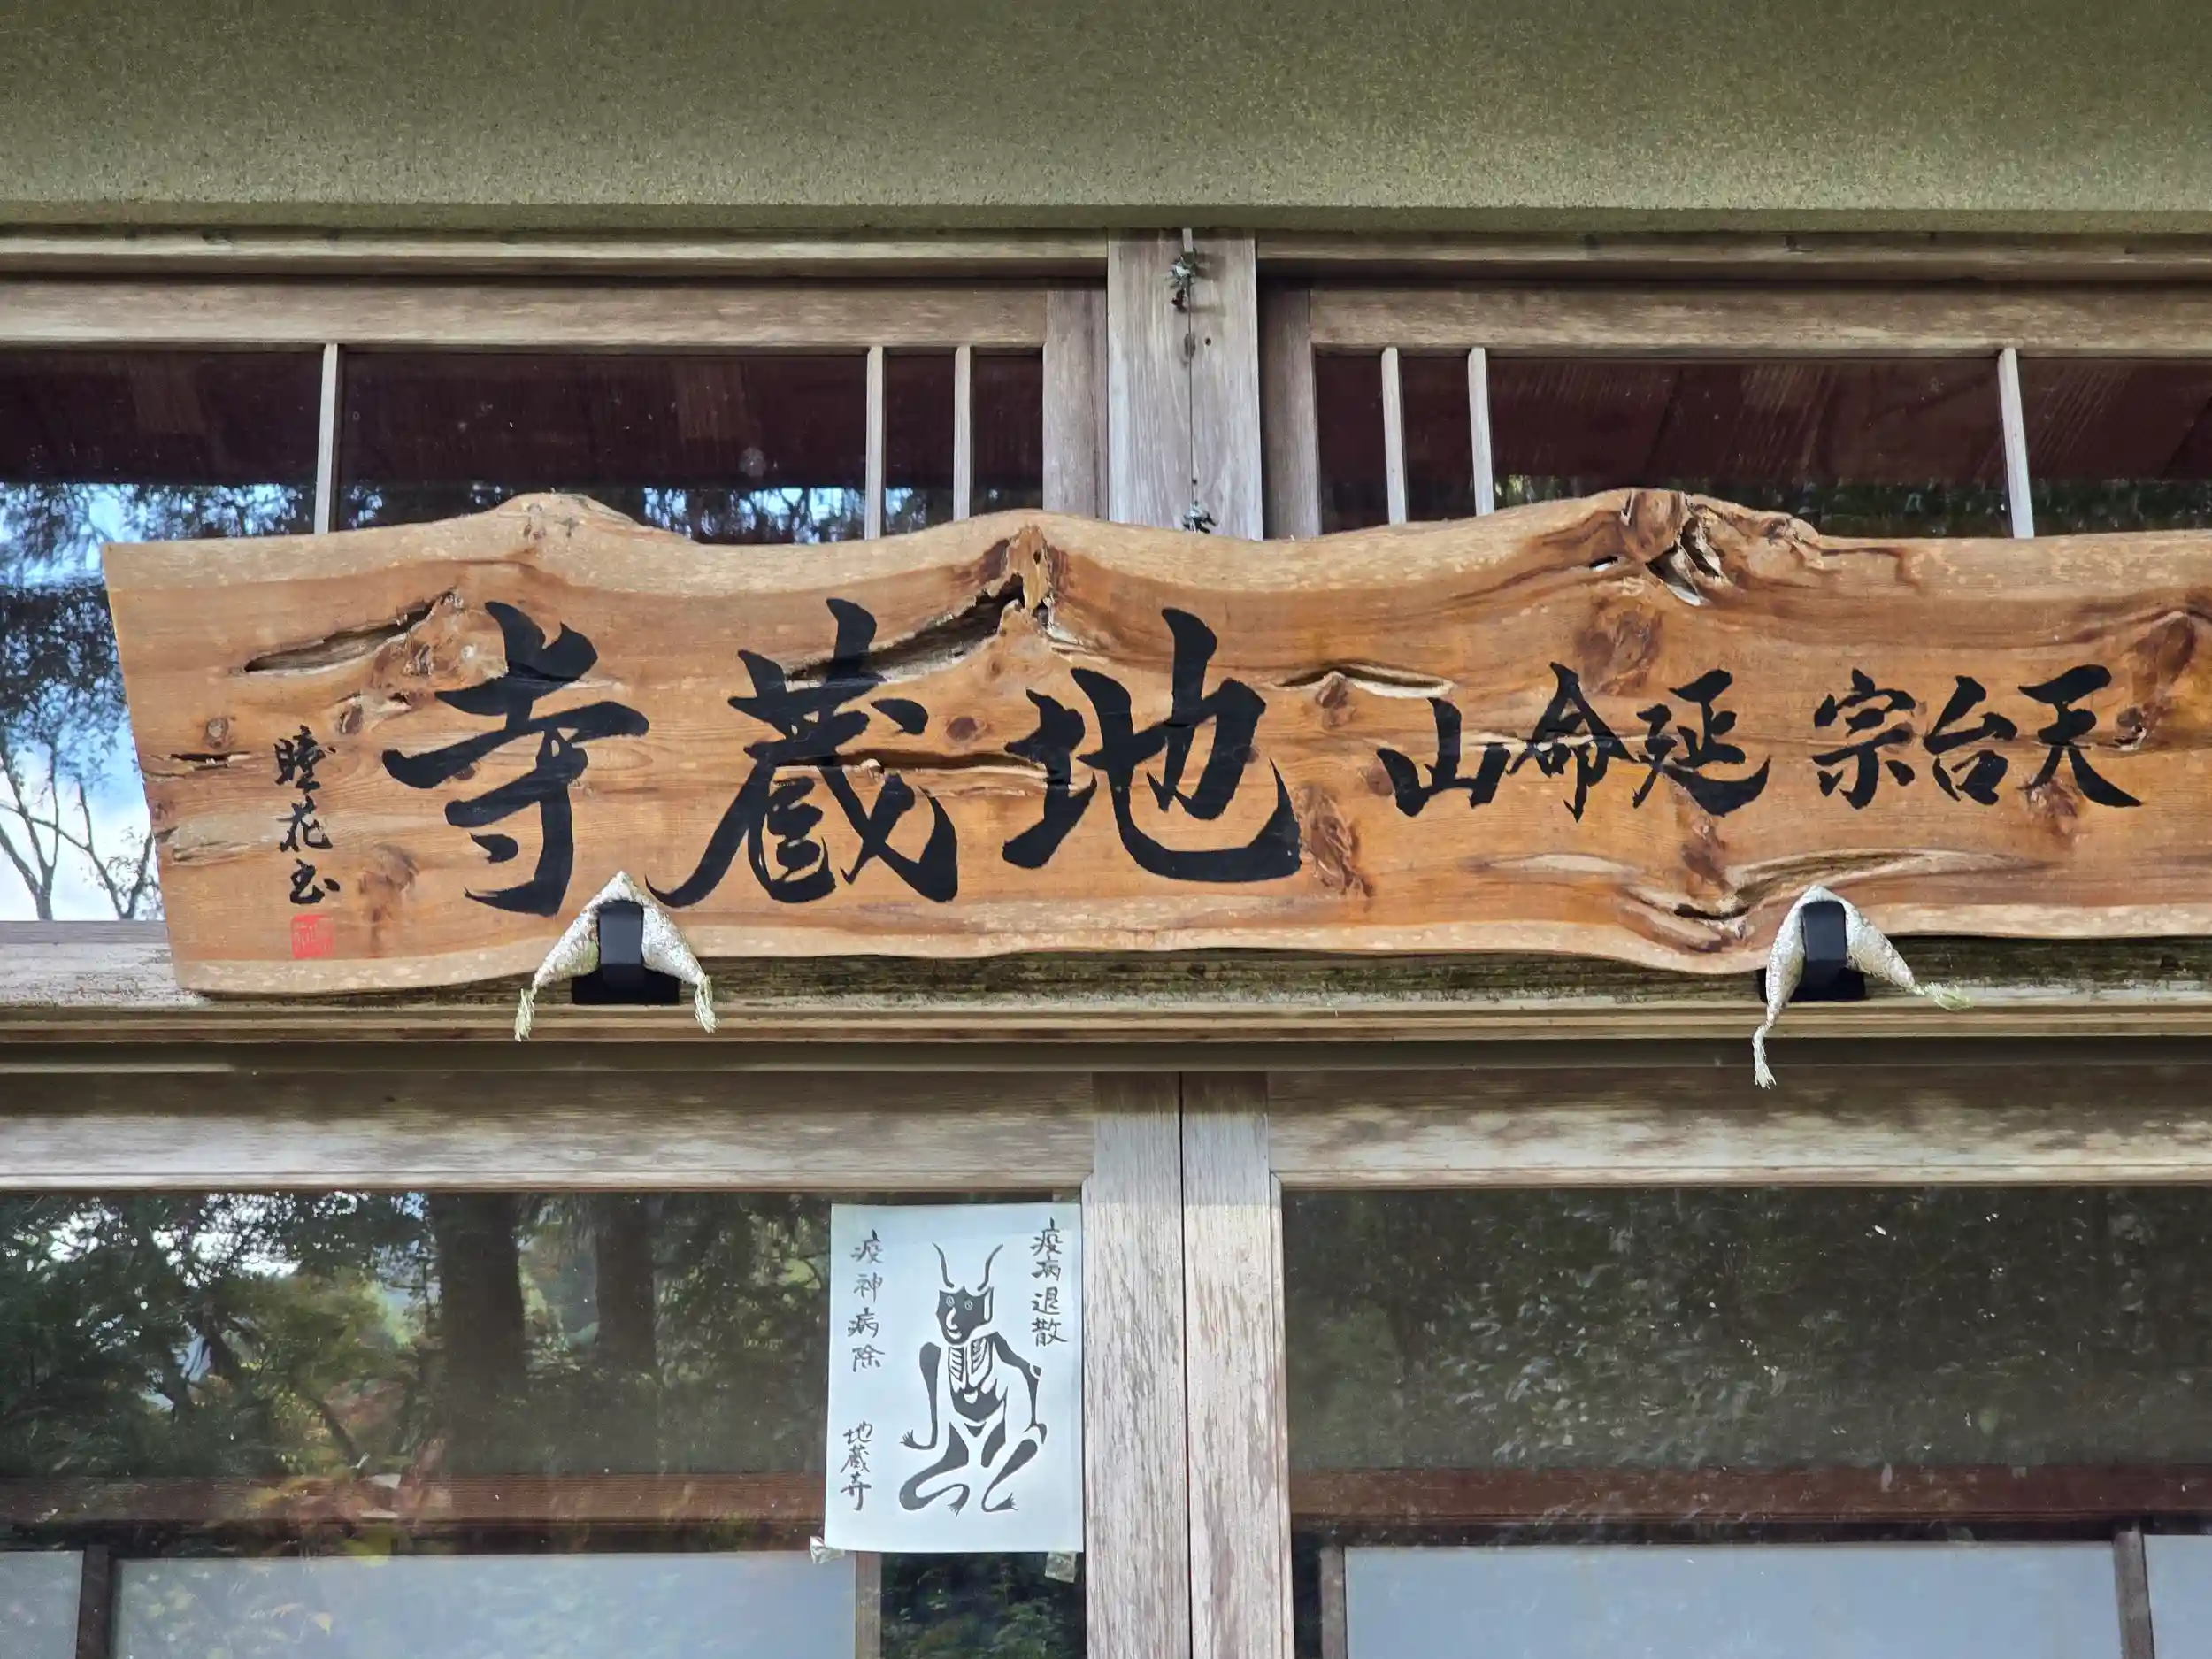 天台宗 延命山 地蔵寺
疫病退散
疫神病除
地蔵寺